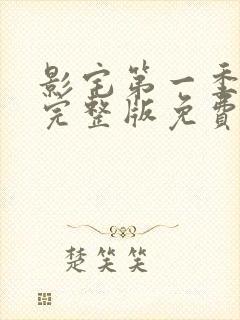 影宅第一季
完整版免费
楚笑笑